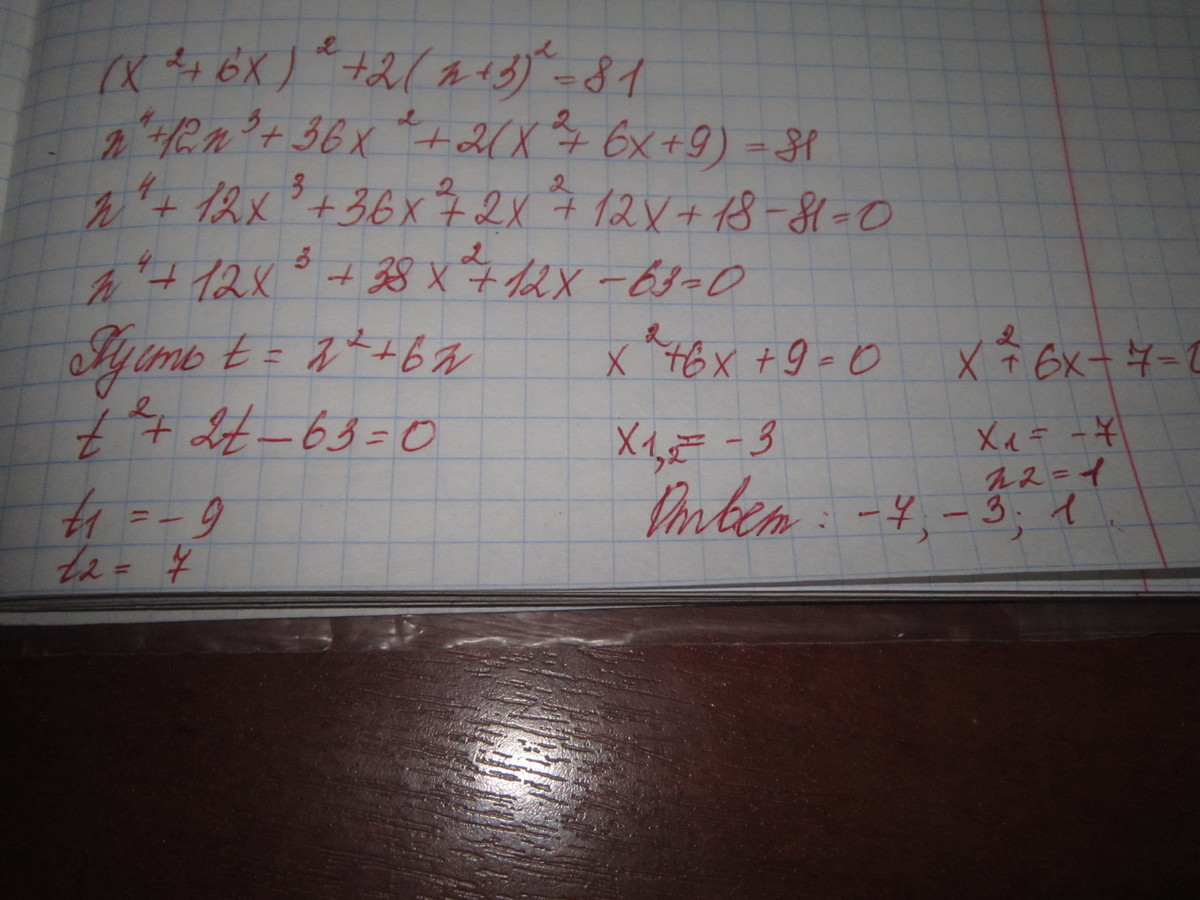 (x²+6x)²+2(x+3)²=81
x⁴+12x³+36x²+2(x²+6x+9)=81
x⁴+12x³+36x²+2x²+12x+18-81=0
x⁴+12x³+38x²+12x-63=0
Пусть t=x²+6x
t²+2t-63=0
t1=-9
t2=7
x²+6x+9=0
x1,2=-3
x²+6x-7=0
x1=-7
x2=1
Ответ: -7; -3; 1.